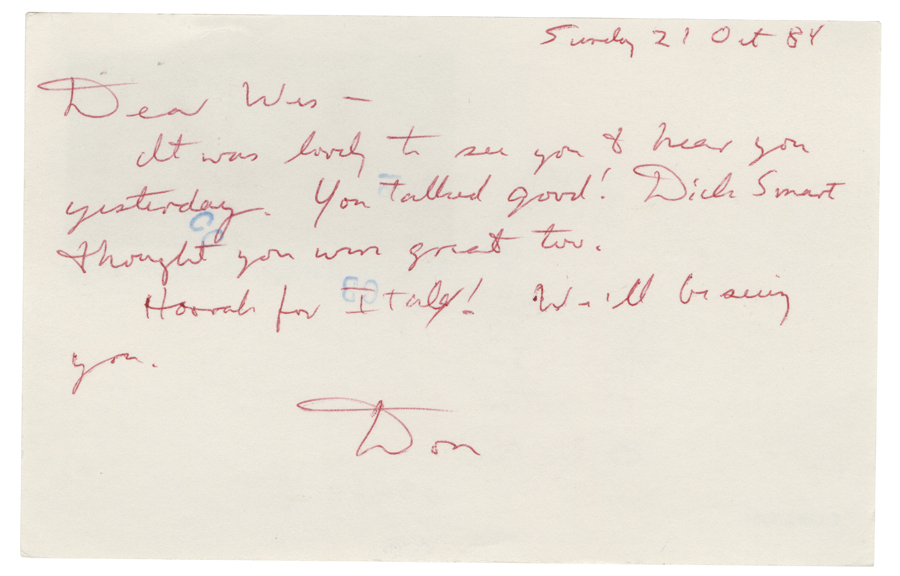 Sunday 21 Oct 84
Dear Wes –
It was lovely to see you & hear you
yesterday. You talked good! Dick Smart
thought you were great too.
Hoorah for Italy! We'll be seeing
you.
Don